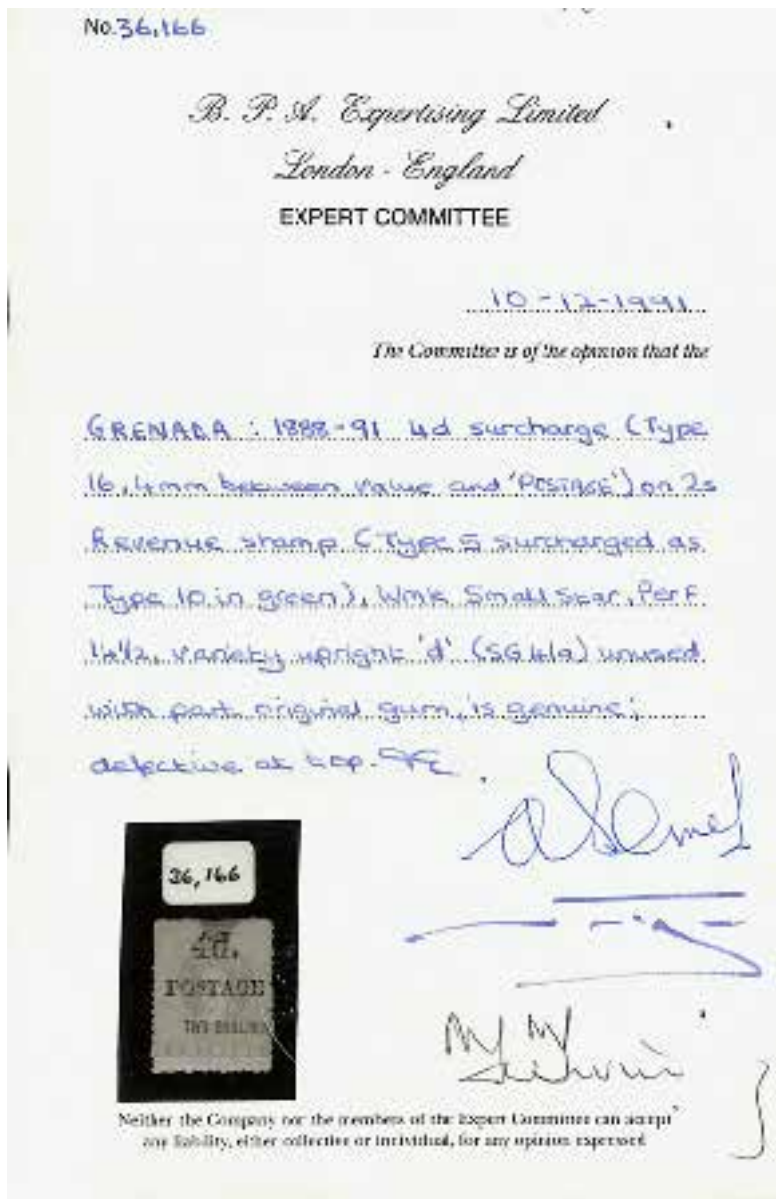 No. 36,166
B. P. A. Expertising Limited
London - England
EXPERT COMMITTEE
10-12-1991
The Committee is of the opinion that the
GRENADA : 1888-91 4d surcharge (Type
16, 4mm between value and 'POSTAGE') on 2s
Revenue stamp (Type 5 surcharged as
Type 10 in green), Wmk Small Star, Perf
14½, variety upright 'd' (SG41a) unused
with part original gum, is genuine;
defective at top.
36,166
4d.
POSTAGE
TWO SHILLINGS
Neither the Company nor the members of the Expert Committee can accept
any liability, either collective or individual, for any opinion expressed